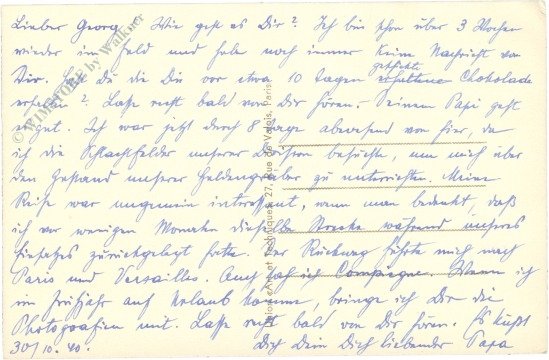 Lieber Georg! Wie geht es Dir? Ich bin schon über 3 Wochen
wieder im Feld und habe noch immer keine Nachricht von
Dir. Hast Du die Dir vor etwa 10 Tagen geschickte erhaltene Chokolade
erhalten? Lasse recht bald von Dir hören. Deinem Papi geht
es gut. Ich war jetzt durch 8 Tage abwesend von hier, da
ich die Schlachtfelder unserer Division besuchte, um mich über
den Zustand unserer Heldengräber zu unterrichten. Meine
Reise war ungemein interessant, wenn man bedenkt, daß
ich vor wenigen Monaten dieselbe Strecke während unseres
zurückgelegt hatte. Der Rückweg führte mich nach
Paris und Versailles. Auch sah ich Compiegne. Wenn ich
im Frühjahr auf Urlaub komme, bringe ich Dir die
Photografien mit. Lasse recht bald von Dir hören. Es küßt
30/10. 40. Dich Dein Dich liebender Papa
Techniques, 27, Rue de Valois, Paris
© WIMSTORE by Walkner